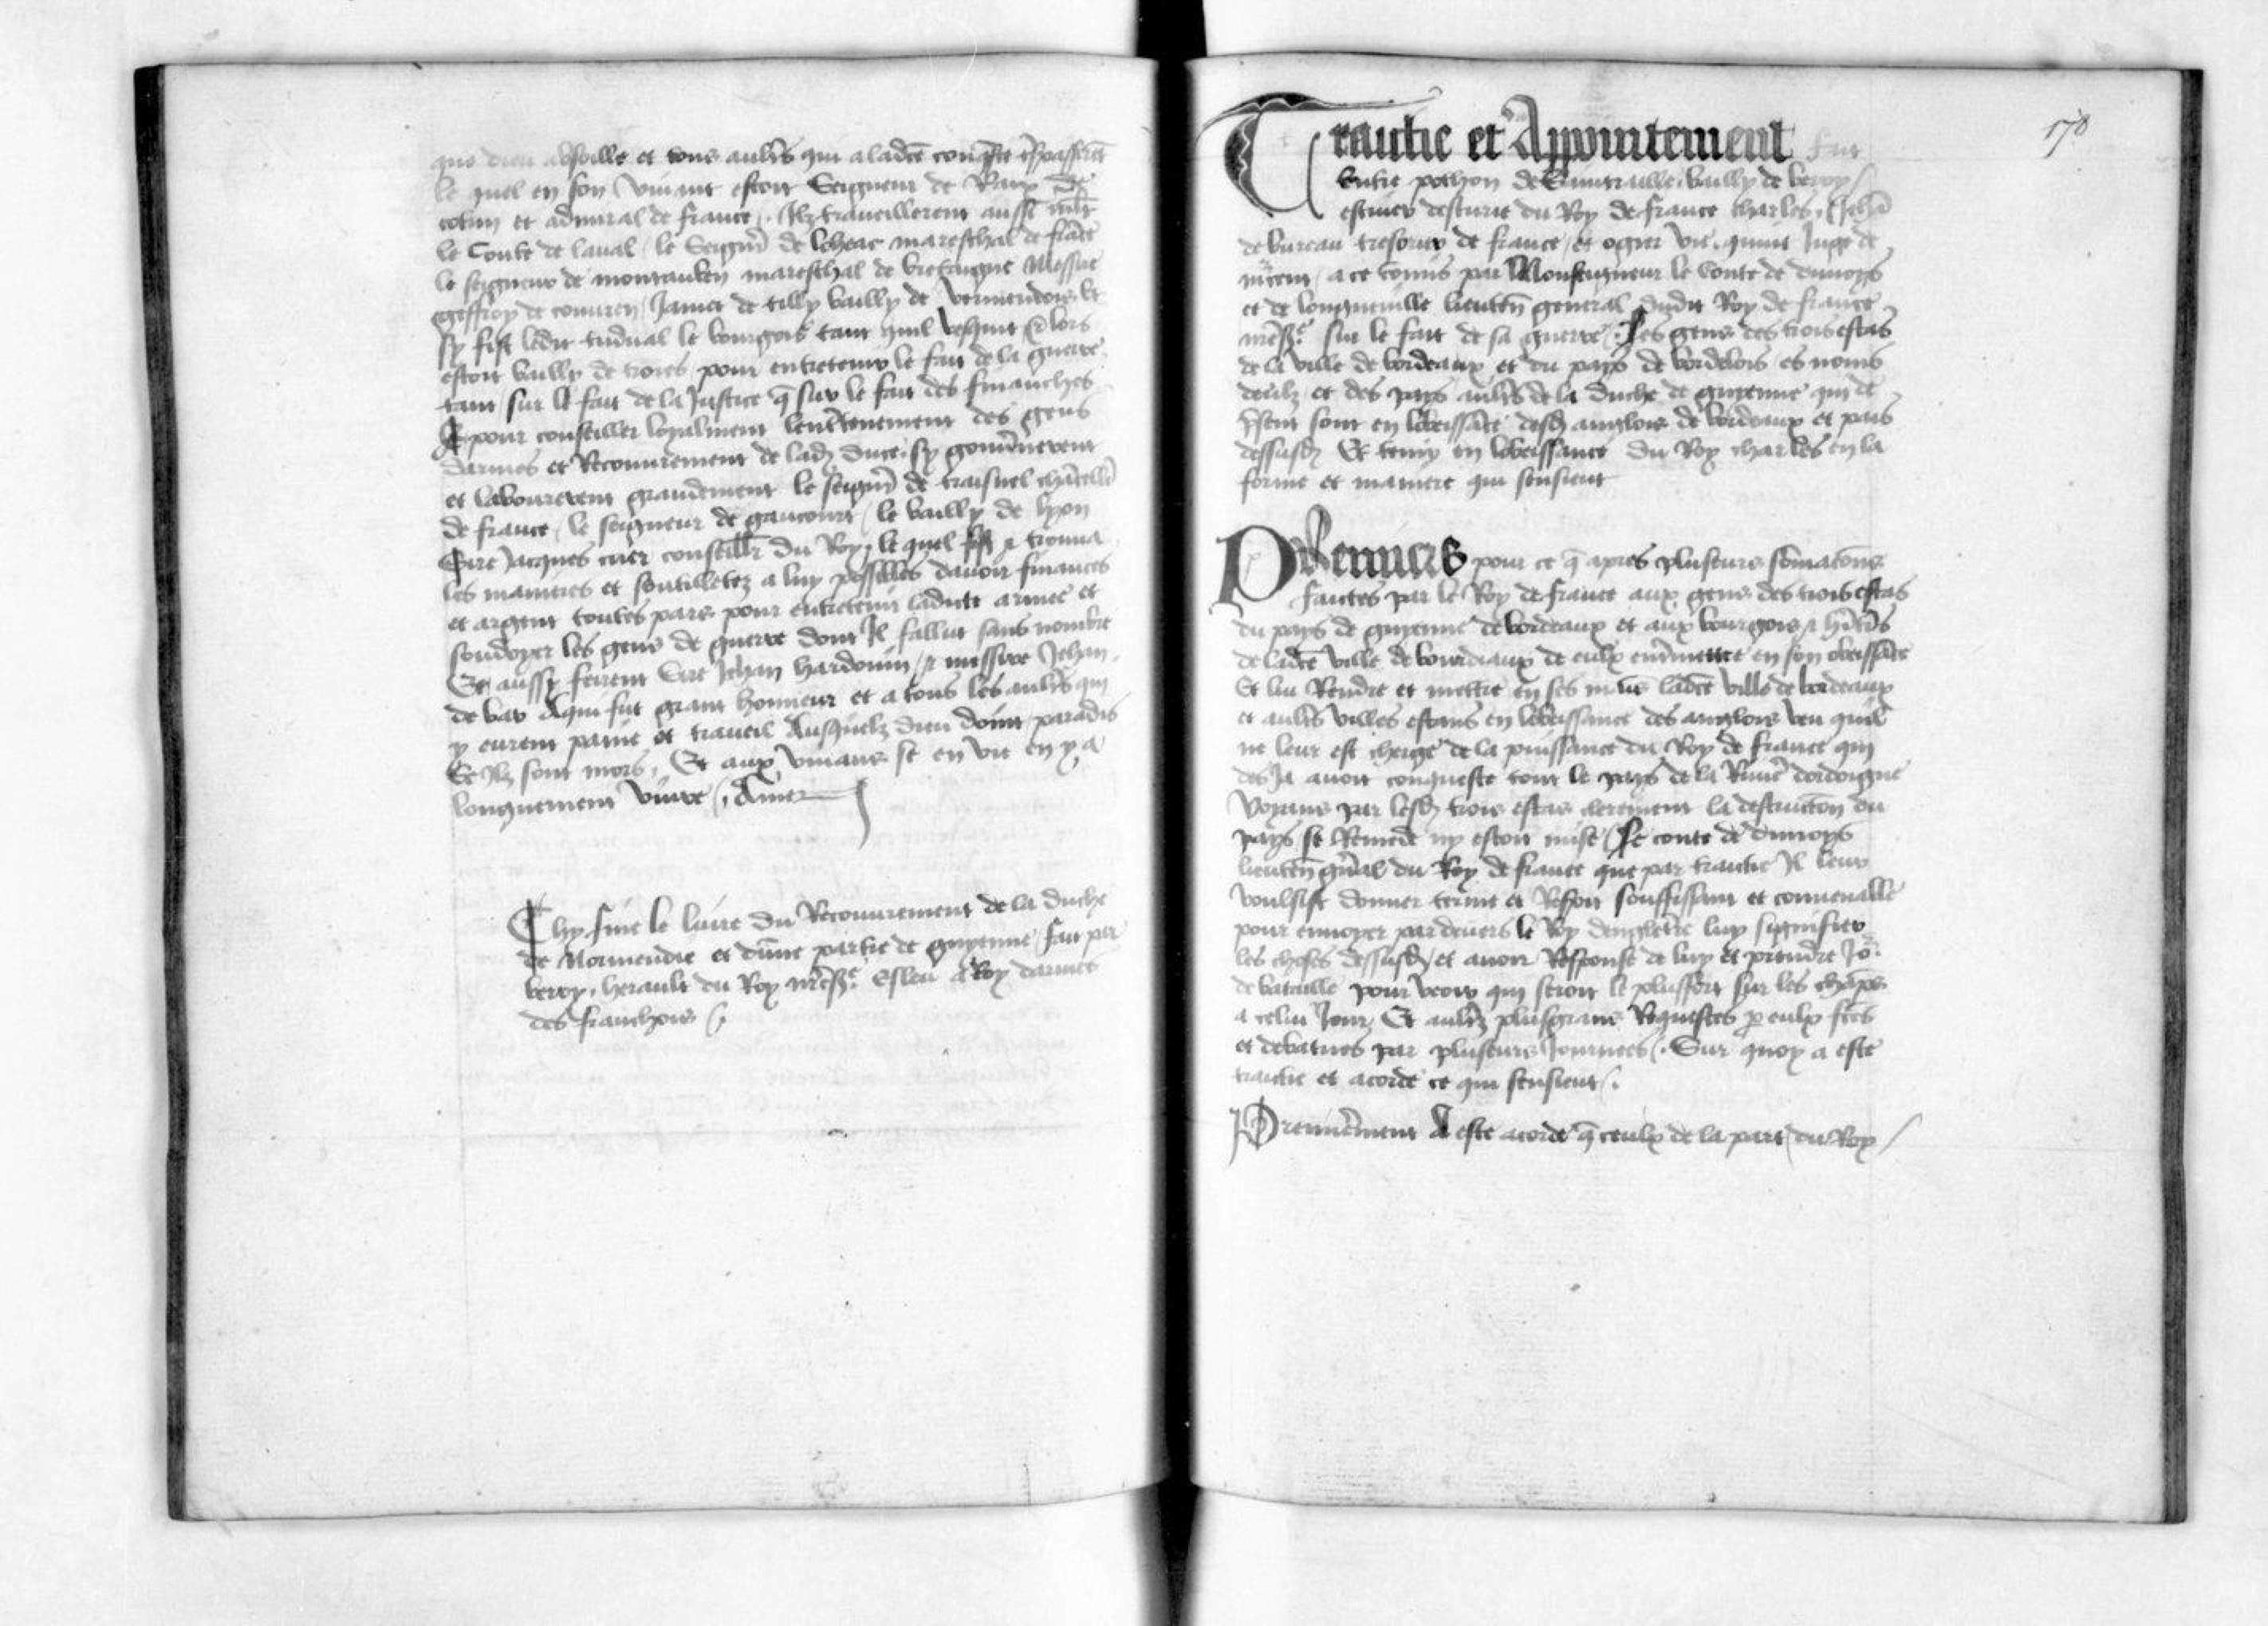 que dieu absoille et tous aultrs qui a ladce conqste tspasserēt
le quel en son viuant estoit Seigneur de Raix de
cotiui et admiral de france / Ilz traueillerent aussi mlt
le Conte de laual / le Seignr̄ de loheac mareschal de frāce
le seigneur de montauben mareschal de bretaigne Messire
geffroy de couuren / Jamet de tilly bailly de vermendois Et
sy fist ledit tudual le bourgois tant quil vesquit & lors
estoit bailly de troies pour entretenir le fait de la guerre
tant sur le fait de la Justice q̄ sur le fait des finanches
Et pour conseiller loyalment lentretenement des gens
darmes et Recouurement de lad duce sy gouuernerent
et labourerent grandement le seignr̄ de traisnel chācellr̄
de france / le seigneur de gaucourt / le bailly de lyon
Sire Jacques cuer conseillr du Roy / le quel & trouua
les manieres et soutilletez a luy possibles dauoir finances
et argent toutes pars pour entretenir ladicte armee et
soudoyer les gens de guerre dont Il fallut sans nombre
Et aussy feirent Sire Jehan hardouin / & messire Jehan
de bar A qui fut grant honneur et a tous les aultrs qui
y eurent paine et traueil Ausquelz dieu doint paradis
Se Ilz sont mors / Et aux viuans se en vie en y a
longuement viure / Amen
Chy fine le liure du Recouurement de la duche
de Normendie et dūne partie de guyenne / fait par
berry / herault du Roy nr̄e sr̄ Esleu a Roy darmes
des franchois /
170
Traictie et Appointement fut
Entre pothon de Saintraille bailly de berry /
escuier descurie du Roy de france charles / Jehā
de bureau tresorier de france / et ogier vie quint Juge de
a ce cōmis par Monseigneur le Conte de dunoys
et de longueuille lieutēn general dudit Roy de france
nr̄e sr̄ sur le fait de sa guerre / Les gens des trois estas
de la ville de bordeaux et du pays de bordelois es noms
deulz / et des pays aultrs de la duche de guyenne qui de
p̄sent sont en lobeissāce desd anglois de bordeaux et pais
dessusd Et tenir en lobeissance du Roy charles en la
forme et maniere qui sensieut
PRemiers pour ce q̄ apres pluseurs sōmacōns
faictes par le Roy de france aux gens des trois estas
du pays de guyenne de bordeaux et aux bourgois & hītās
de ladce ville de bourdiaux de eulx en mettre en son obeissāce
Et lui Rendre et mettre en ses mains ladce ville de bordeaux
et aultrs villes estans en lobeissance des anglois veu quil
ne leur est cherge de la puissance du Roy de france qui
des Ja auoit conqueste tout le pays de la Riuie dordoigne
Voyans par lesd trois estas clerement la destructōn du
pays se Remede ny estoit mise / Le conte de dunoys
lieutēn gn̄al du Roy de france que par traictie Il leur
voulsist donner terme et Respit souffissant et conuenable
pour enuoyer pardeuers le Roy dengletr̄e luy signifier
les choses dessusd / et auoir Response de luy et prendre Jor
de bataille pour veoir qui seroit le plus fort sur les chāps
a celui Jour / Et aultrz plusgrans Requestes p eulx fctes
et debatues par pluseurs Journees / Sur quoy a este
traictie et acorde ce qui sensieut /
Premierement A este acorde q̄ ceulx de la part du Roy /